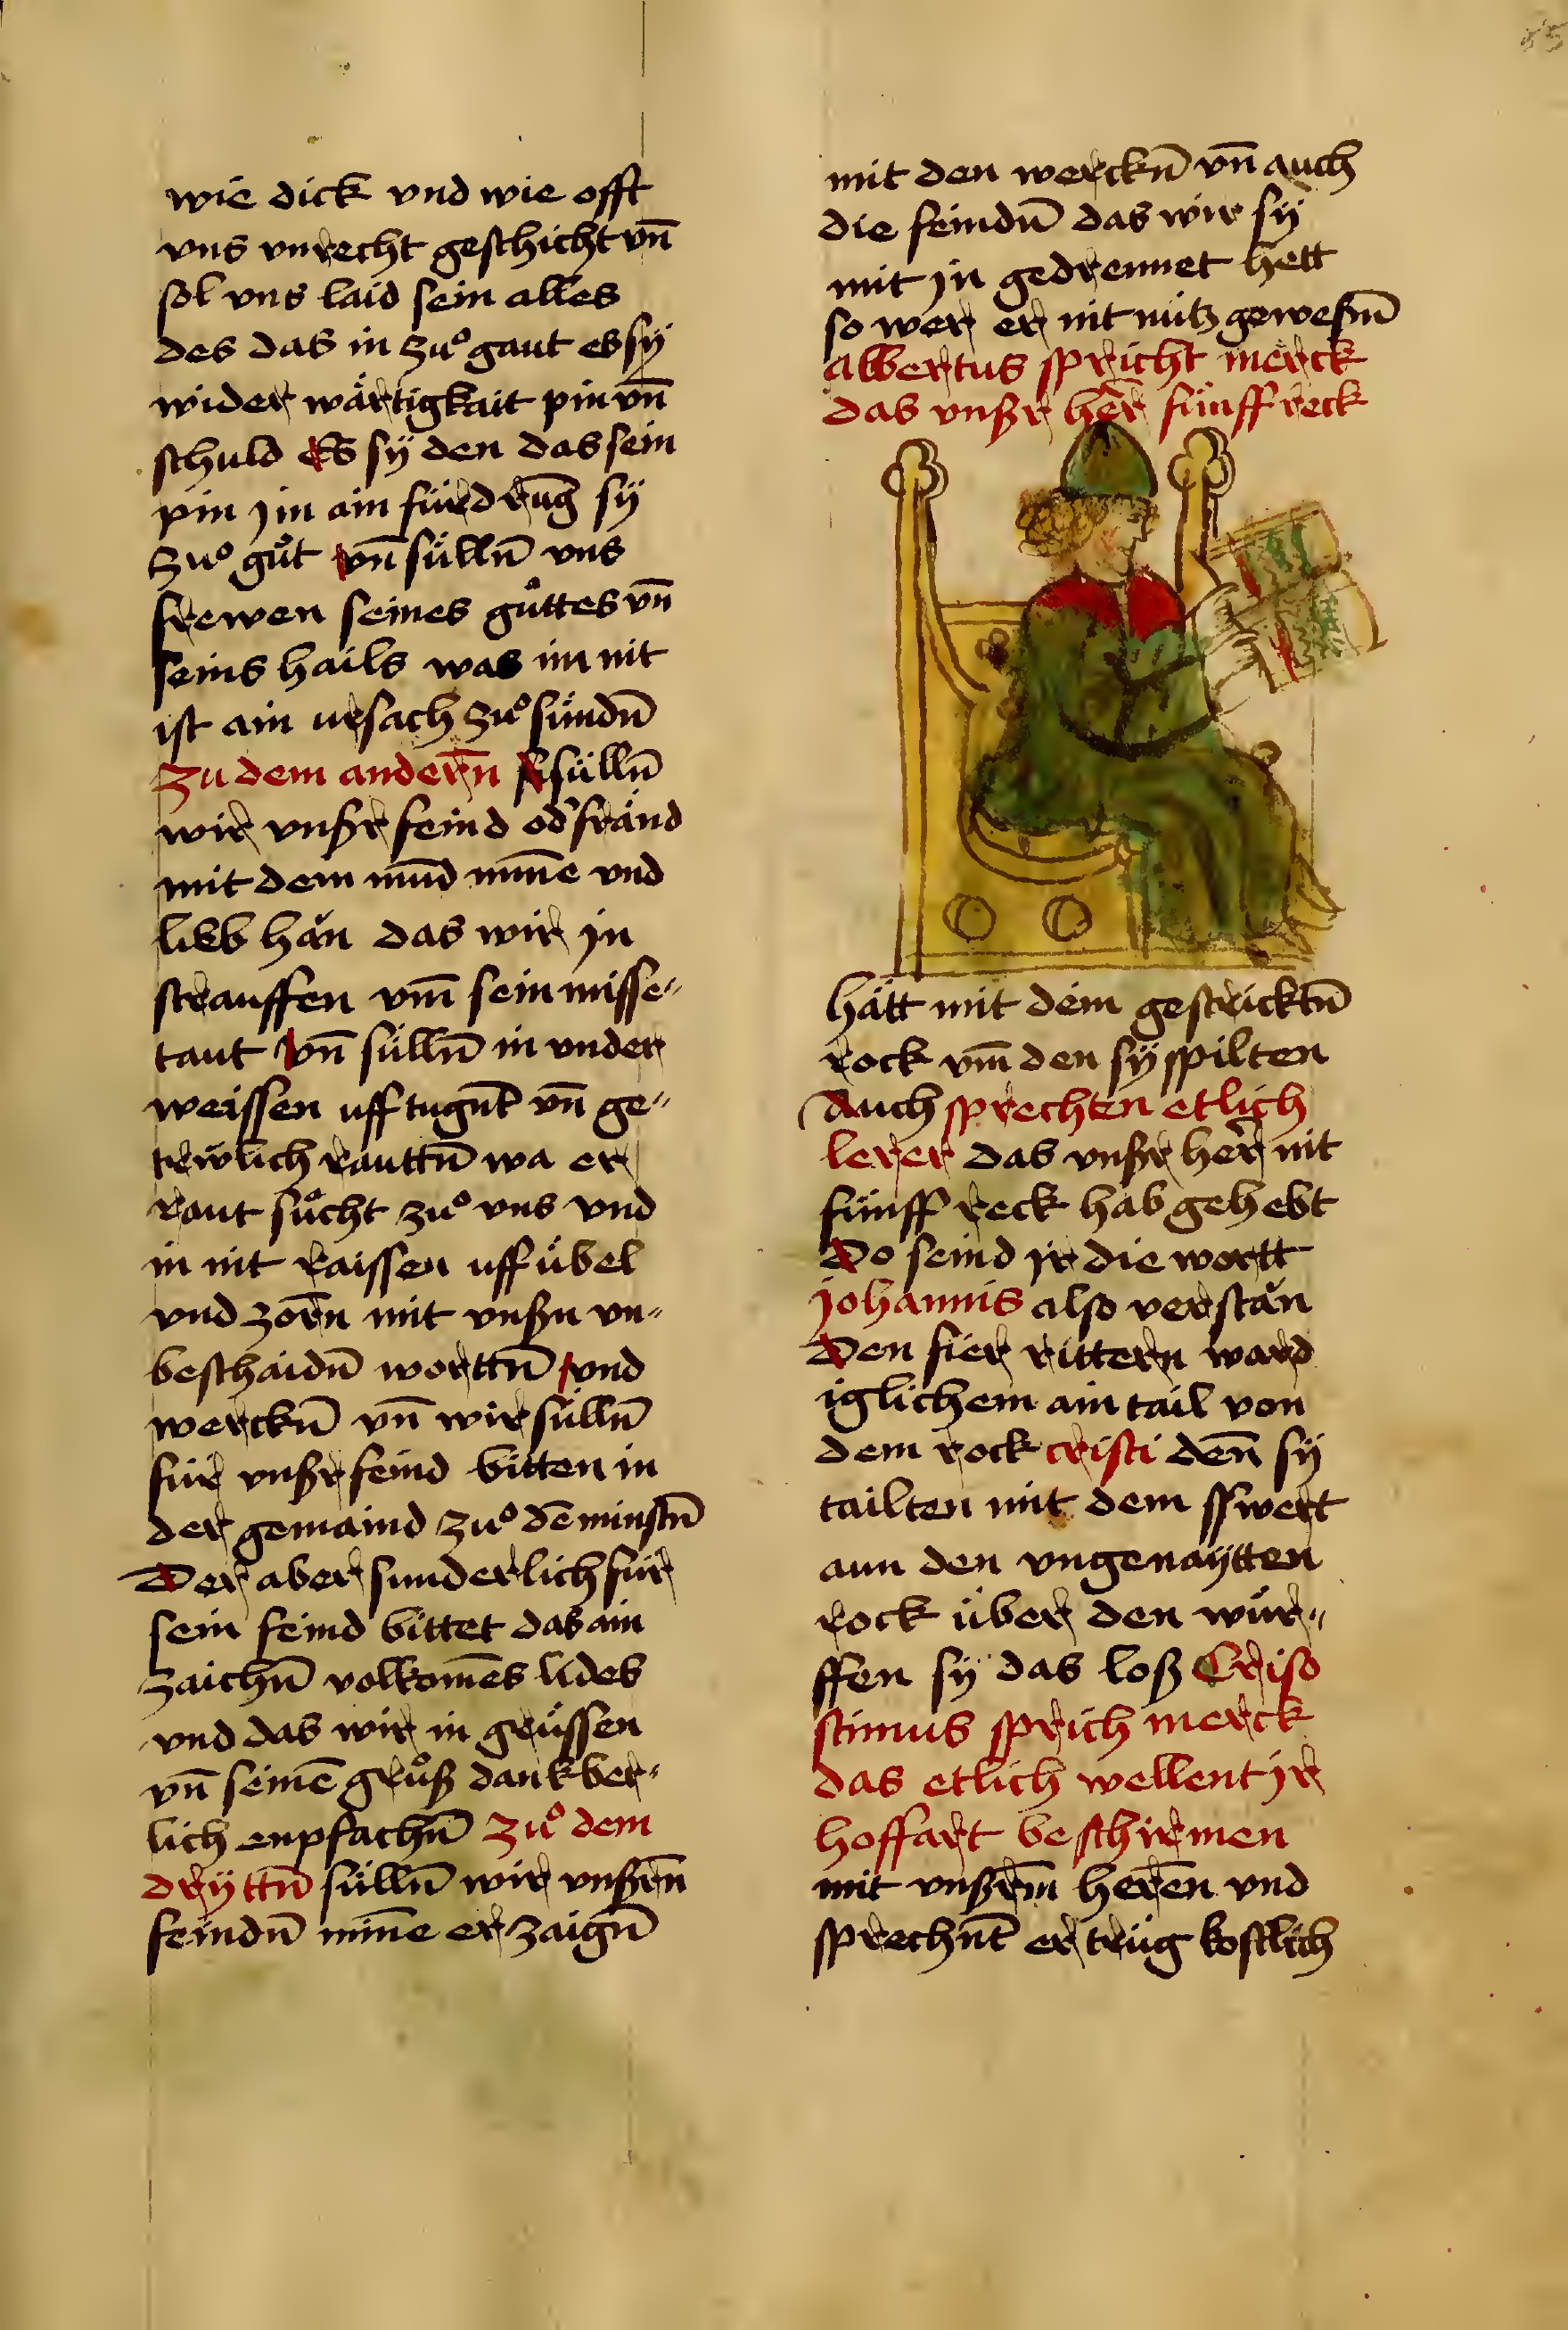 wie dick vnd wie offt
vns vnrecht geschicht vn̄
sol vns laid sein alles
des das in zuͦ gaut es sÿ
wider wärtigkait pin vn̄
schuld Es sÿ den das sein
pin jm ain fürdrūg sÿ
zuͦ guͦt vn̄ sülln̄ vns
frewen seines guͦttes vn̄
seins hails was im nit
ist ain ursach zuͦ sündn̄
zu dem andern̄ sülln̄
wir vnßr feind od' fränd
mit dem mūd mīne vnd
lieb hän das wir jn
strauffen vm̄ sein misse„
taut vn̄ sülln̄ in vnder
weissen uff tugn̄t vn̄ ge„
trewlich rauttn̄ wa er
raut suͦcht zuͦ vns vnd
in nit raissen uff übel
vnd zorn̄ mit vnßn vn„
beschaidn̄ worttn̄ vnd
werckn̄ vn̄ wir sülln̄
für vnßr feind bitten in
der gemaind zuͦ dē minstn̄
Der aber sunderlich für
sein feind bittet das ain
zaichn̄ volkomēs lides
vnd das wir in grüssen
vn̄ seinē gruͦß dankber„
lich enpfachn̄ zuͦ dem
drÿttn̄ sülln̄ wir vnßrn̄
feindn̄ mīne erzaign̄
mit den werckn̄ vn̄ auch
die feindn̄ das wir sÿ
mit jn gedrennet hett
so wer er nit nütz geweßn̄
albertus spricht merck
das vnßr her̄ fünff reck
hätt mit dem gestricktn̄
rock vm̄ den sÿ spilten
Auch sprechten etlich
lerer das vnßr her̄ nit
fünff reck hab gehebt
Do seind jr die wortt
johannis also verstän
Den fier rittern ward
iglichem ain tail von
dem rock cristi den̄ sÿ
tailten mit dem sswert
aun den vngenaÿtten
rock über den wür„
ffen sÿ das loß Criso
stimus sprich merck
das etlich wellent jr
hoffart beschirmen
mit vnßrm̄ heren̄ vnd
sprechn̄t er trüg kostlich